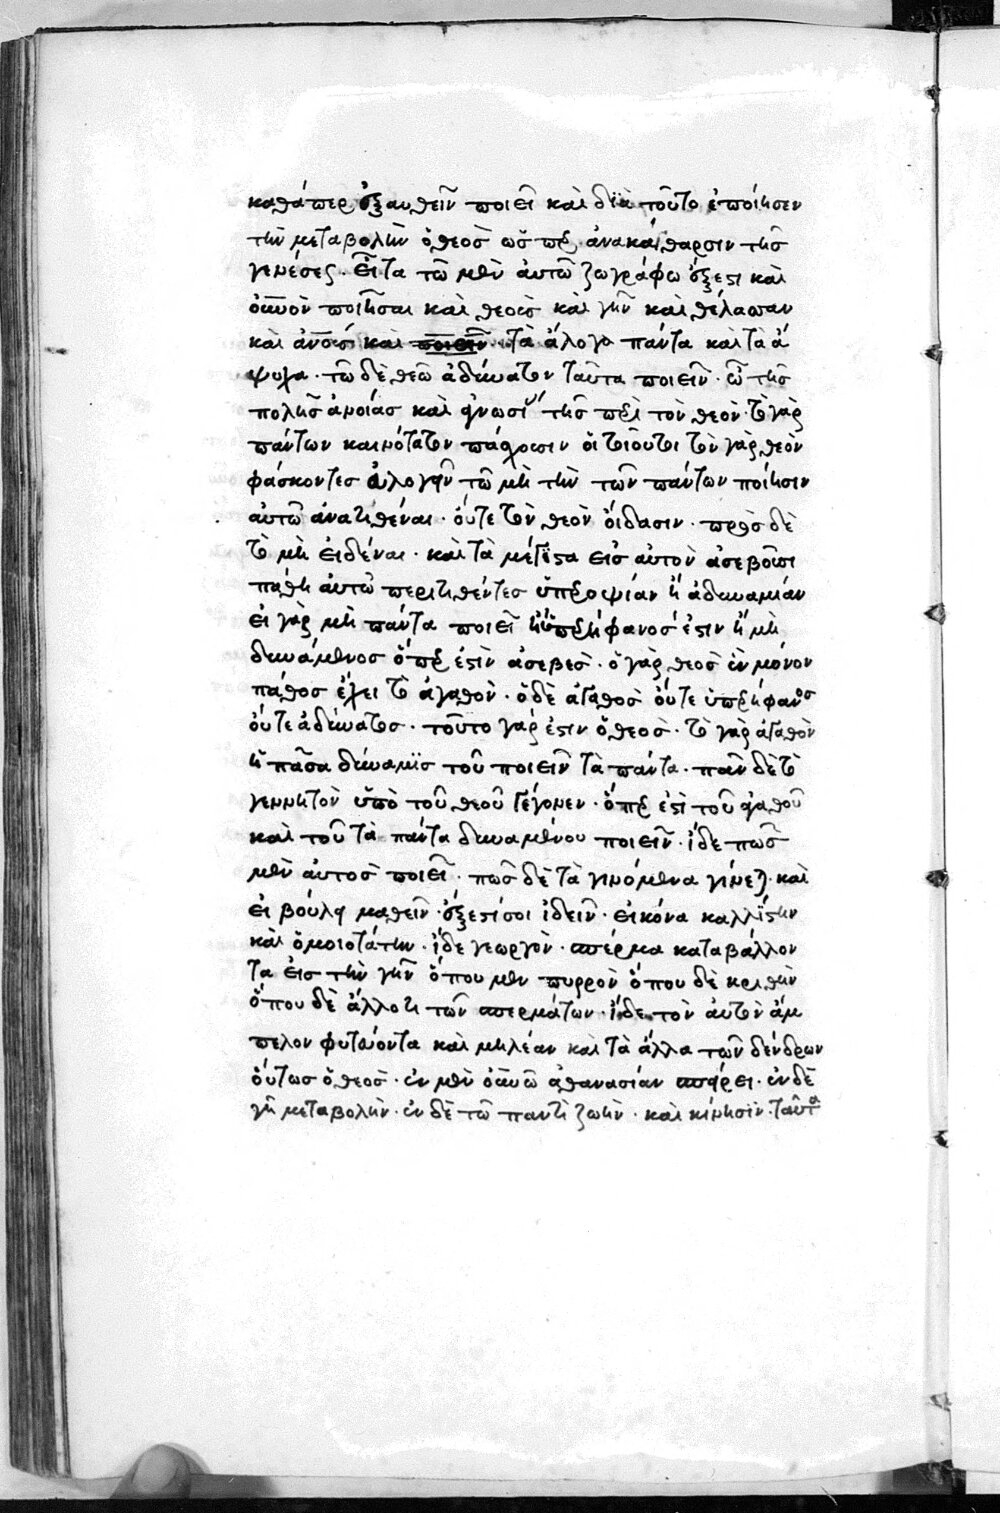 καθάπερ ἐξανθεῖν ποιεῖ καὶ διὰ τοῦτο ἐποίησεν
τὴν μεταβολὴν ὁ θεὸς ὥσπερ ἀνακάθαρσιν τῆς
γενέσεως. εἶτα τῶ μὲν αὐτῶ ζωγράφω ἔξεστι καὶ
οὐνὸν ποιῆσαι καὶ θεοὺς καὶ γῆν καὶ θέλασσαν
καὶ ἀνους καὶ ποιεῖν τὰ ἄλογα πάντα καὶ τὰ ἄ
ψυχα. τῶ δὲ θεῶ ἀδύνατον ταῦτα ποιεῖν. ὢ τῆς
πολλῆς ἀνοίας καὶ ἀγνωσίας τῆς περὶ τὸν θεὸν. τὸ γὰρ
πάντων καινότατον πάσχουσιν οἱ τοιοῦτοι τὸν γὰρ θεὸν
φάσκοντες εὐλογεῖν τῶ μὴ τὴν τῶν πάντων ποίησιν
αὐτῶ ἀνατιθέναι. οὔτε τὸν θεὸν οἴδασιν. πρὸς δὲ
τὸ μὴ εἰδέναι. καὶ τὰ μέγιστα εἰς αὐτὸν ἀσεβοῦσι
πάθη αὐτῶ περιτιθέντες ὑπεροψίαν ἢ ἀδυναμίαν
εἰ γὰρ μὴ πάντα ποιεῖ ἢ ὑπερήφανός ἐστιν ἢ μὴ
δυνάμενος ὅπερ ἐστὶν ἀσεβές. ὁ γὰρ θεὸς ἓν μόνον
πάθος ἔχει τὸ ἀγαθὸν. ὁ δὲ ἀγαθὸς οὔτε ὑπερήφανος
οὔτε ἀδύνατος. τοῦτο γάρ ἐστιν ὁ θεὸς. τὸ γὰρ ἀγαθὸν
ἡ πᾶσα δύναμις τοῦ ποιεῖν τὰ πάντα. πᾶν δὲ τὸ
γεννητὸν ὑπὸ τοῦ θεοῦ γέγονεν. ὅπερ ἐστὶ τοῦ ἀγαθοῦ
καὶ τοῦ τὰ πάντα δυναμένου ποιεῖν. ἴδε πῶς
μὲν αὐτὸς ποιεῖ. πῶς δὲ τὰ γινόμενα γίνεται. καὶ
εἰ βούλει μαθεῖν. ἔξεστί σοι ἰδεῖν. εἰκόνα καλλίστην
καὶ ὁμοιοτάτην. ἴδε γεωργὸν. σπέρμα καταβάλλον
τα εἰς τὴν γῆν ὅπου μὲν πυρρὸν ὅπου δὲ κριθὴν
ὅπου δὲ ἄλλο τι τῶν σπερμάτων. ἴδε τὸν αὐτὸν ἄμ
πελον φυτεύοντα καὶ μηλέαν καὶ τὰ ἄλλα τῶν δένδρων
οὕτως ὁ θεὸς. ἐν μὲν οὐνῶ ἀθανασίαν σπείρει. ἐν δὲ
γῆ μεταβολὴν. ἐν δὲ τῶ παντὶ ζωὴν. καὶ κίνησιν. ταῦτα